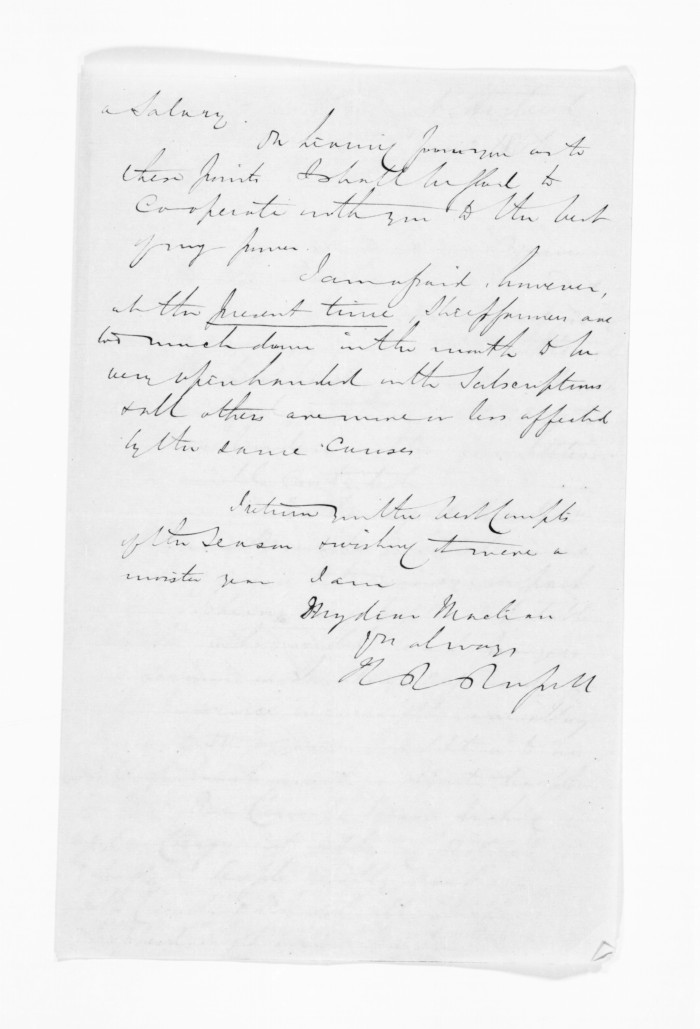 a Salary.
On hearing from you as to
these points I shall be glad to
Co-operate with you to the best
of my power.
I am afraid, however,
at the present time, Sheepfarmers are
too much down in the mouth to be
very openhanded with Subscriptions
& all others are more or less affected
by the same Causes
I return you the best Compts
of the Season & wishing it were a
moister year I am
My dear Maclean
Yrs always
H R Russell